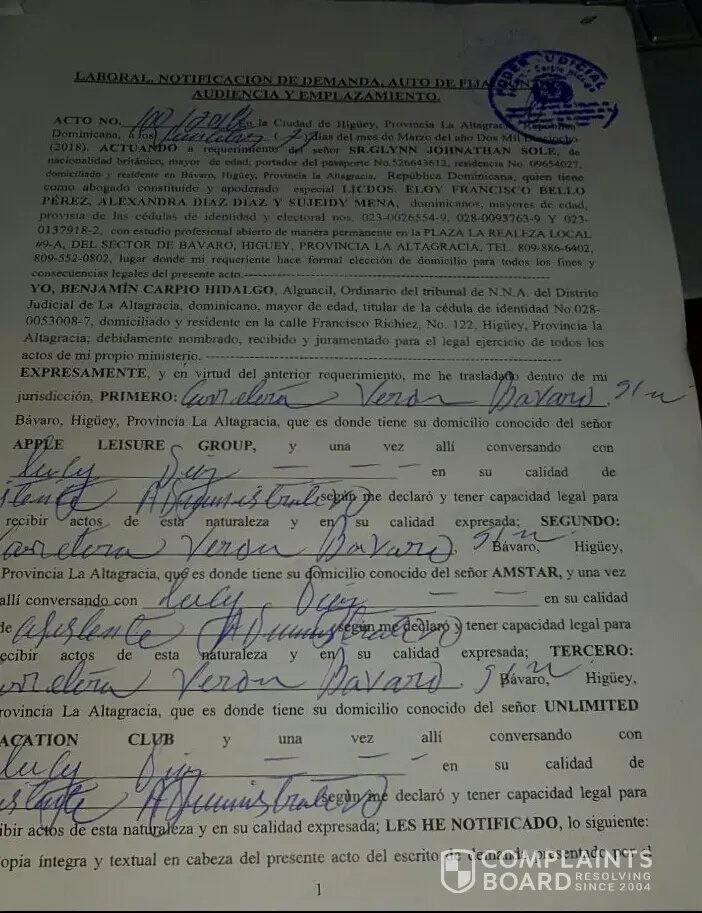 LABORAL. NOTIFICACION DE DEMANDA, AUTO DE FIJA
AUDIENCIA Y EMPLAZAMIENTO.
PODER JUDICIAL
ACTO NO. en la Ciudad de Higüey, Provincia La Altagracia, República
Dominicana, a los (7) días del mes de Marzo del año Dos Mil Dieciocho
(2018). ACTUANDO a requerimiento del señor SR.GLYNN JOHNATHAN SOLE, de
nacionalidad británico, mayor de edad, portador del pasaporte No.526643612, residencia No. 09654027,
domiciliado y residente en Bávaro, Higüey, Provincia La Altagracia, República Dominicana, quien tiene
como abogado constituido y apoderado especial LICDOS. ELOY FRANCISCO BELLO
PÉREZ, ALEXANDRA DIAZ DIAZ Y SUJEIDY MENA, dominicanos, mayores de edad,
provista de las cédulas de identidad y electoral nos. 023-0026554-9, 028-0093763-9 Y 023-
0137918-2, con estudio profesional abierto de manera permanente en la PLAZA LA REALEZA LOCAL
#9-A, DEL SECTOR DE BAVARO, HIGUEY, PROVINCIA LA ALTAGRACIA, TEL. 809-886-6402,
809-552-0802, lugar donde mi requeriente hace formal elección de domicilio para todos los fines y
consecuencias legales del presente acto.
YO, BENJAMÍN CARPIO HIDALGO, Alguacil, Ordinario del tribunal de N.N.A. del Distrito
Judicial de La Altagracia, dominicano, mayor de edad, titular de la cédula de identidad No.028-
0053008-7, domiciliado y residente en la calle Francisco Richiez, No. 122, Higüey, Provincia la
Altagracia; debidamente nombrado, recibido y juramentado para el legal ejercicio de todos los
actos de mi propio ministerio.
EXPRESAMENTE, y en virtud del anterior requerimiento, me he trasladado dentro de mi
jurisdicción, PRIMERO: Carretera Veron Bavaro. S/n
Bávaro, Higüey, Provincia La Altagracia, que es donde tiene su domicilio conocido del señor
APPLE LEISURE GROUP, y una vez allí conversando con
en su calidad de
Administrativo según me declaró y tener capacidad legal para
recibir actos de esta naturaleza y en su calidad expresada; SEGUNDO:
Carretera Veron Bavaro, S/n Bávaro, Higüey,
Provincia La Altagracia, que es donde tiene su domicilio conocido del señor AMSTAR, y una vez
allí conversando con en su calidad
de asistente Administrativo según me declaró y tener capacidad legal para
ecibir actos de esta naturaleza y en su calidad expresada; TERCERO:
arretera Veron Bavaro. S/n Bávaro, Higüey,
rovincia La Altagracia, que es donde tiene su domicilio conocido del señor UNLIMITED
ACATION CLUB y una vez allí conversando con
en su calidad de
Administrativo según me declaró y tener capacidad legal para
ibir actos de esta naturaleza y en su calidad expresada; LES HE NOTIFICADO, lo siguiente:
opia íntegra y textual en cabeza del presente acto del escrito de demanda presentado por el
1
COMPLAINTS
BOARD
RESOLVING
SINCE 2004